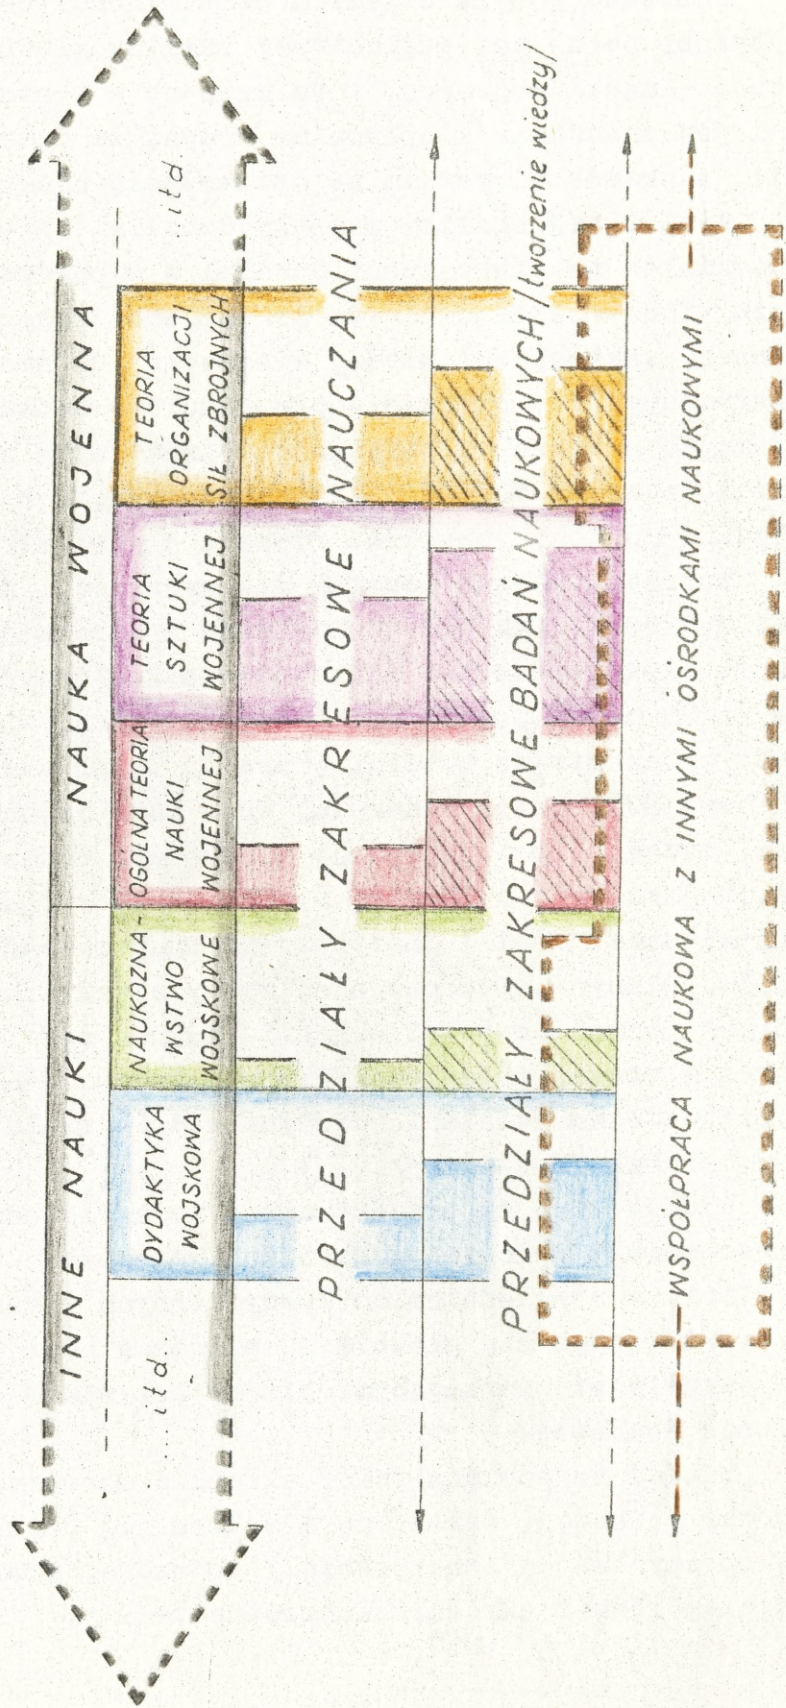 INNE NAUKI
NAUKA WOJENNA
... itd..
DYDAKTYKA
WOJSKOWA
NAUKOZNA-
WSTWO
WOJSKOWE
OGÓLNA TEORIA
NAUKI
WOJENNEJ
TEORIA
SZTUKI
WOJENNEJ
TEORIA
ORGANIZACJI
SIŁ ZBROJNYCH
...itd.
PRZEDZIAŁY ZAKRESOWE NAUCZANIA
PRZEDZIAŁY ZAKRESOWE BADAŃ NAUKOWYCH /tworzenie wiedzy/
WSPÓŁPRACA NAUKOWA Z INNYMI OŚRODKAMI NAUKOWYMI